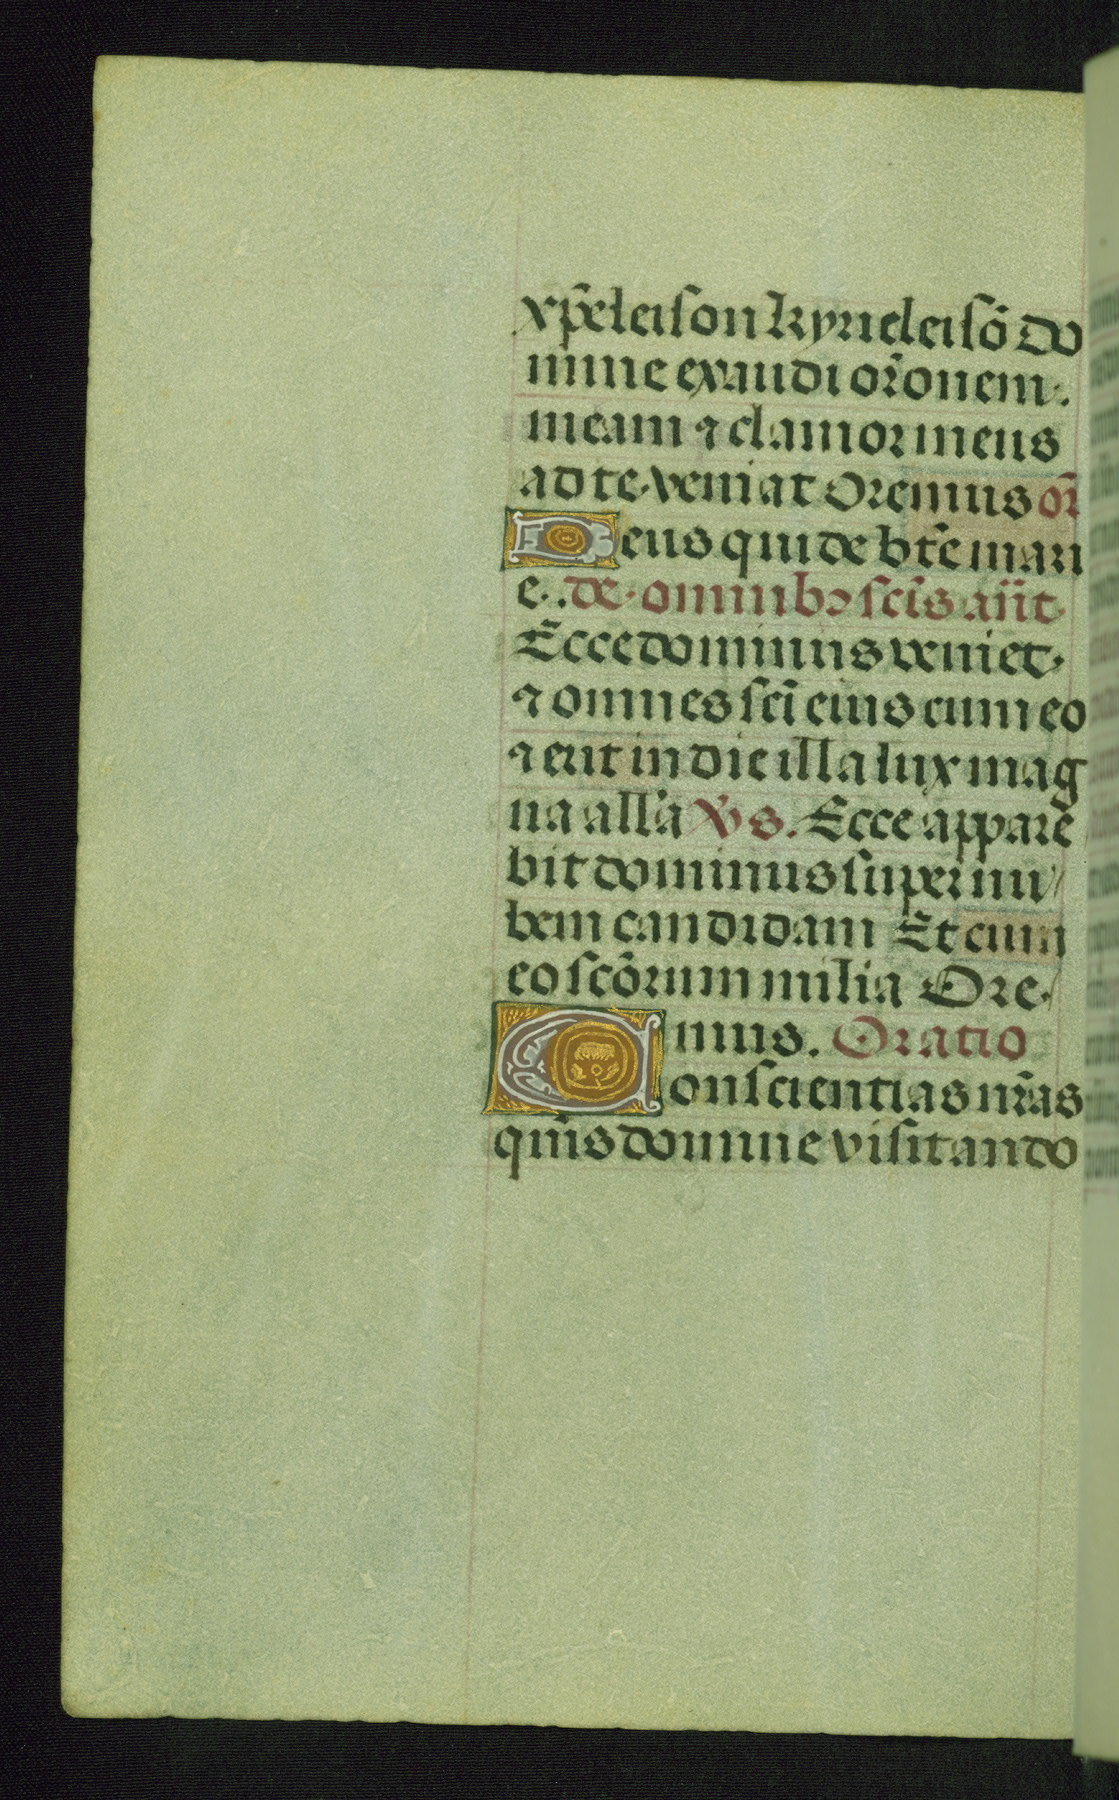 xp̄eleison kyrieleisō Do
mine exaudi or̄onem
meam ⁊ clamor meus
ad te veniat Oremus or̄
Deus qui de bt̄e mari
e. de omnibꝫ sc̄is añt
Ecce dominus veniet
⁊ omnes sc̄i eius cum eo
⁊ erit in die illa lux mag
na all'a V's. Ecce appare
bit dominus super nu
bem candidam Et cum
eo sc̄ōrum milia Ore
mus. Oratio
Conscientias nr̄as
qm̄s domine visitando